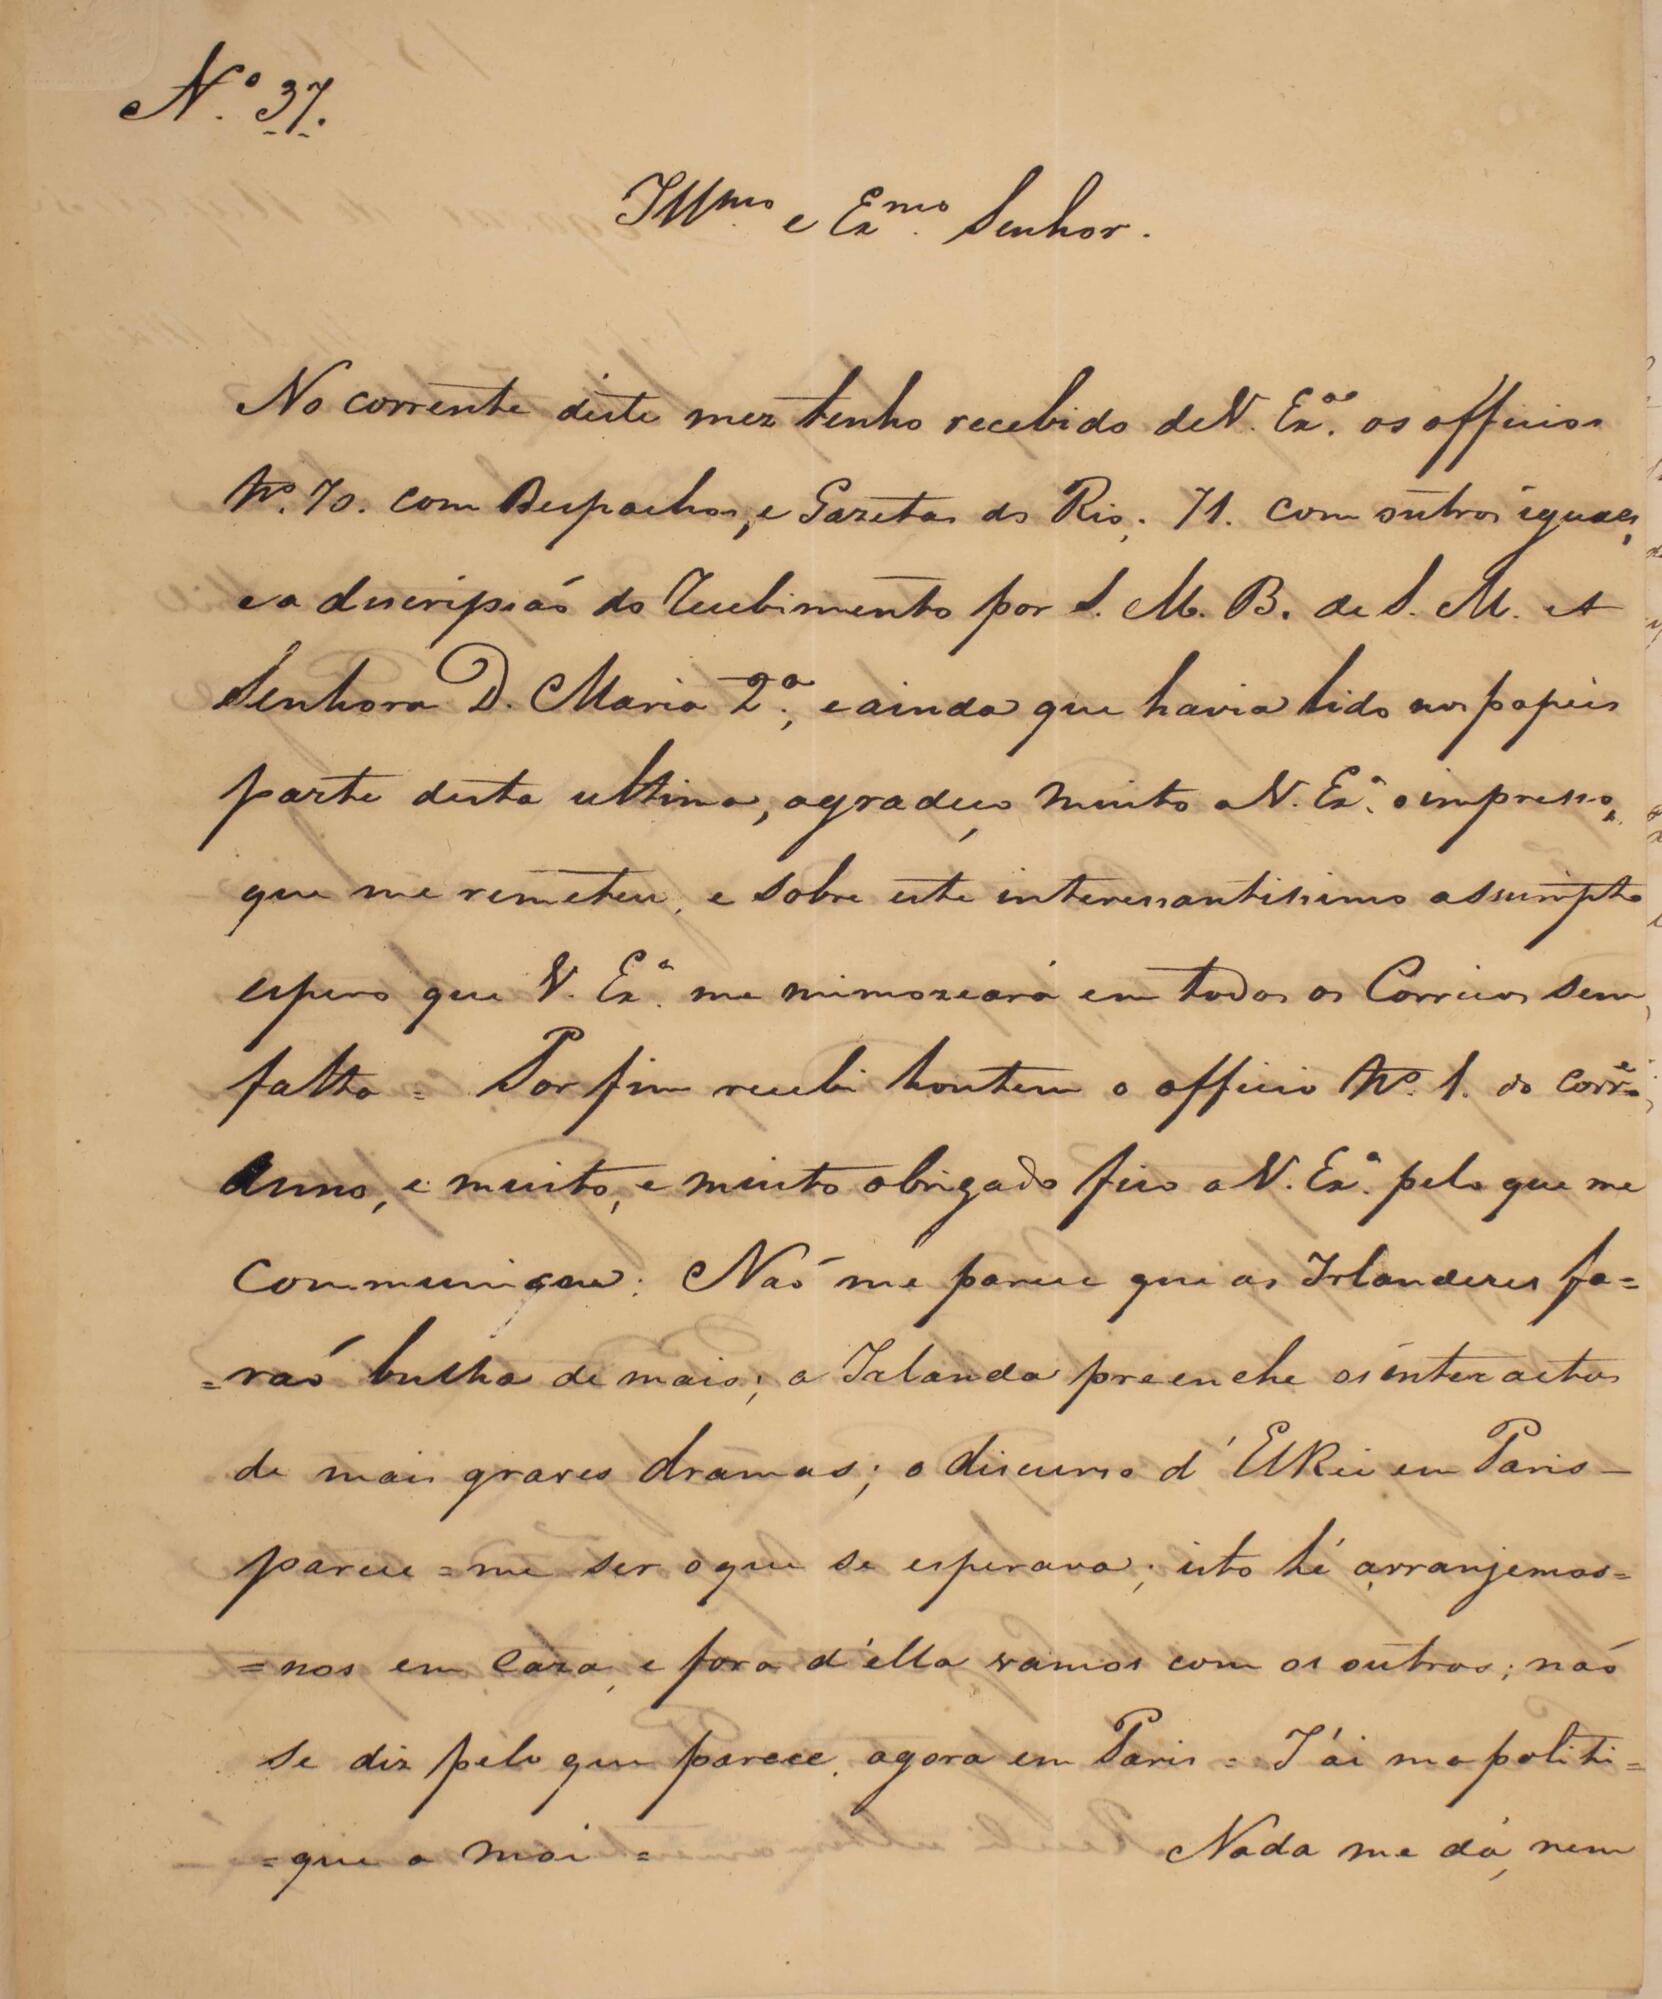 Nº 37.
Illmo. e Exmo. Senhor.
No corrente deste mez tenho recebido de V. Exa. os officios
Nº. 70. com Despachos, e Gazetas do Rio, 71. com outros iguaes,
e a descripsaõ do Recebimento por S. M. B. de S. M. A
Senhora D. Maria 2ª, e ainda que havia lido nos papeis
parte desta ultima, agradeço muito a V. Exª. o impresso,
que me remeteu, e sobre este interessantissimo assumpto
espero que V. Exª. me mimozeará em todos os Correios sem
falta = Por fim recebi hontem o officio Nº. 1. do corre.
Anno, e muito, e muito obrigado fico a V. Exª. pelo que me
communica: Naõ me parece que os Irlandeses fa=
=raõ bulha de mais; a Irlanda preenche os interactos
de mais graves dramas; o discurso d'ElRei em Paris —
parece=me ser o que se esperava; isto hé arranjemos=
=nos em caza, e fora d'ella vamos com os outros; naõ
se diz pelo que parece, agora em Paris = J'ai ma politi=
=que a moi = Nada me dá, nem